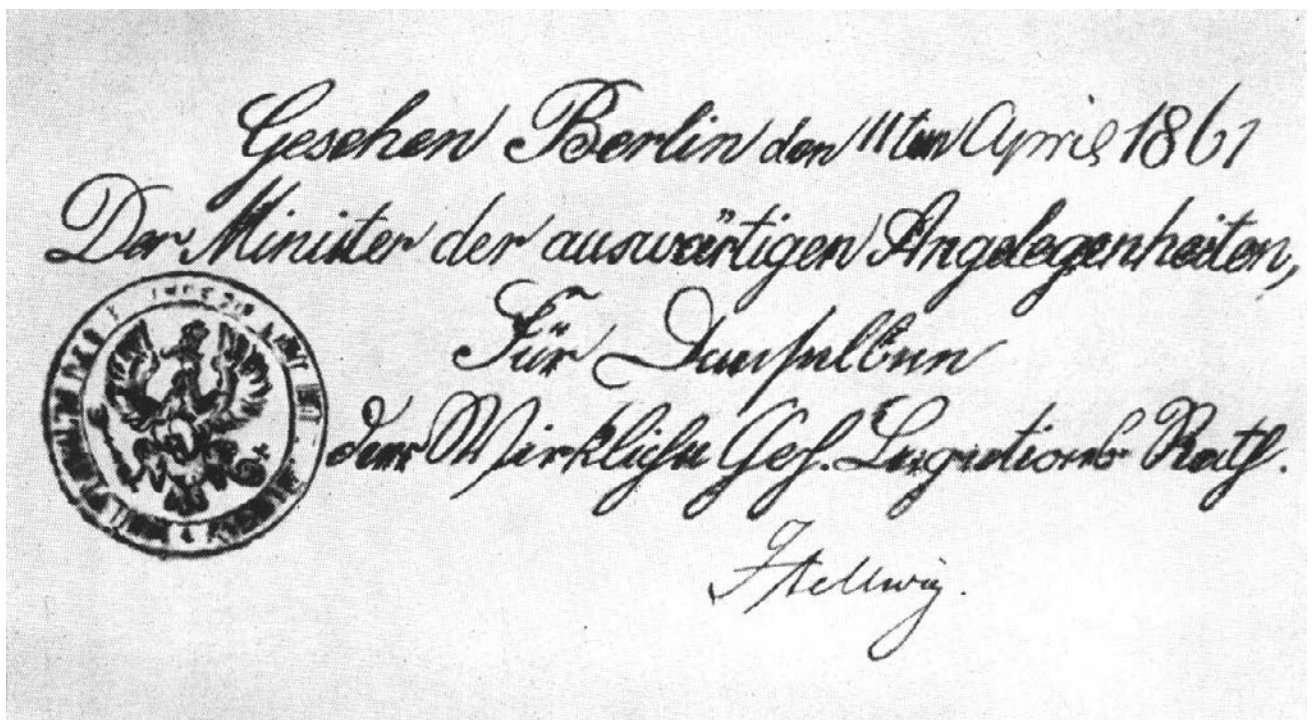 Gesehen Berlin den 11ten April 1861
Der Minister der auswärtigen Angelegenheiten,
Für Denselben
der Wirkliche Geh. Legations Rath.
Hellwig.